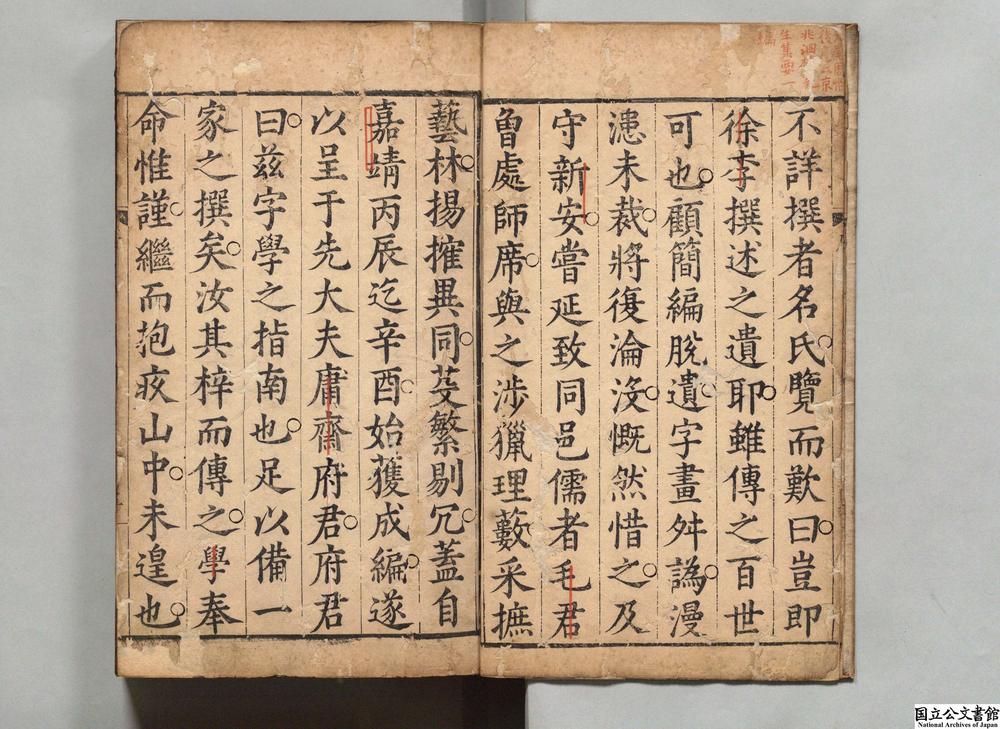 不詳撰者名氏覽而歎曰豈即
徐李撰述之遺耶雖傳之百世
可也顧簡編脫遺字畫舛譌漫
漶未裁將復淪沒慨然惜之及
守新安嘗延致同邑儒者毛君
魯處師席與之涉獵理藪采摭
藝林揚搉異同芟繁剔冗蓋自
嘉靖丙辰迄辛酉始獲成編遂
以呈于先大夫庸齋府君府君
曰茲字學之指南也足以備一
家之撰矣汝其梓而傳之學奉
命惟謹繼而抱疚山中未遑也
国立公文書館
National Archives of Japan